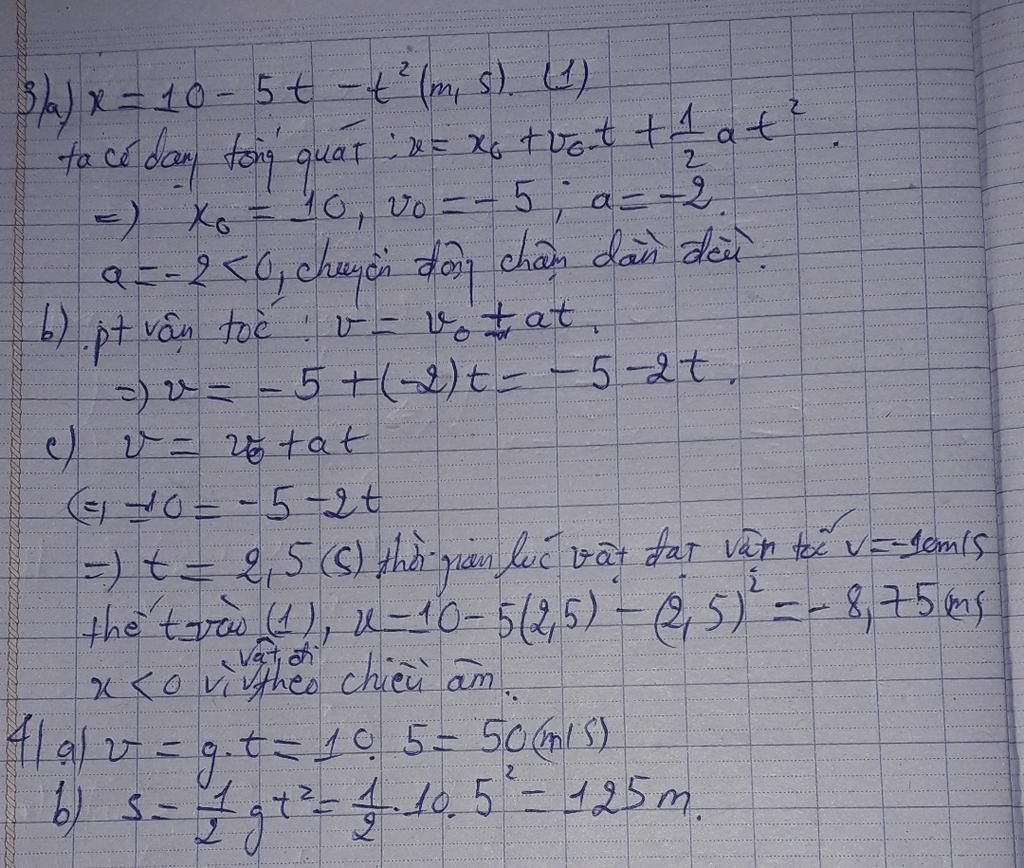 3/a) x = 10 - 5t - t² (m, s). (1)
ta có dạng tổng quát : x = x₀ + v₀.t + 1/2 a t².
=) x₀ = 10, v₀ = - 5 ; a = - 2.
a = - 2 < 0, chuyển động chậm dần đều.
b) pt vận tốc : v = v₀ + at.
=) v = - 5 + (-2) t = - 5 - 2t.
c) v = v₀ + at
(=) -10 = - 5 - 2t
=) t = 2,5 (s) thời gian lúc vật đạt vận tốc v = -10m/s
thế t vào (1), x = 10 - 5(2,5) - (2,5)² = - 8,75 (m)
x < 0 vì vật đi theo chiều âm.
4/ a) v = g.t = 10. 5 = 50 (m/s)
b) s = 1/2 gt² = 1/2 . 10. 5² = 125 m.